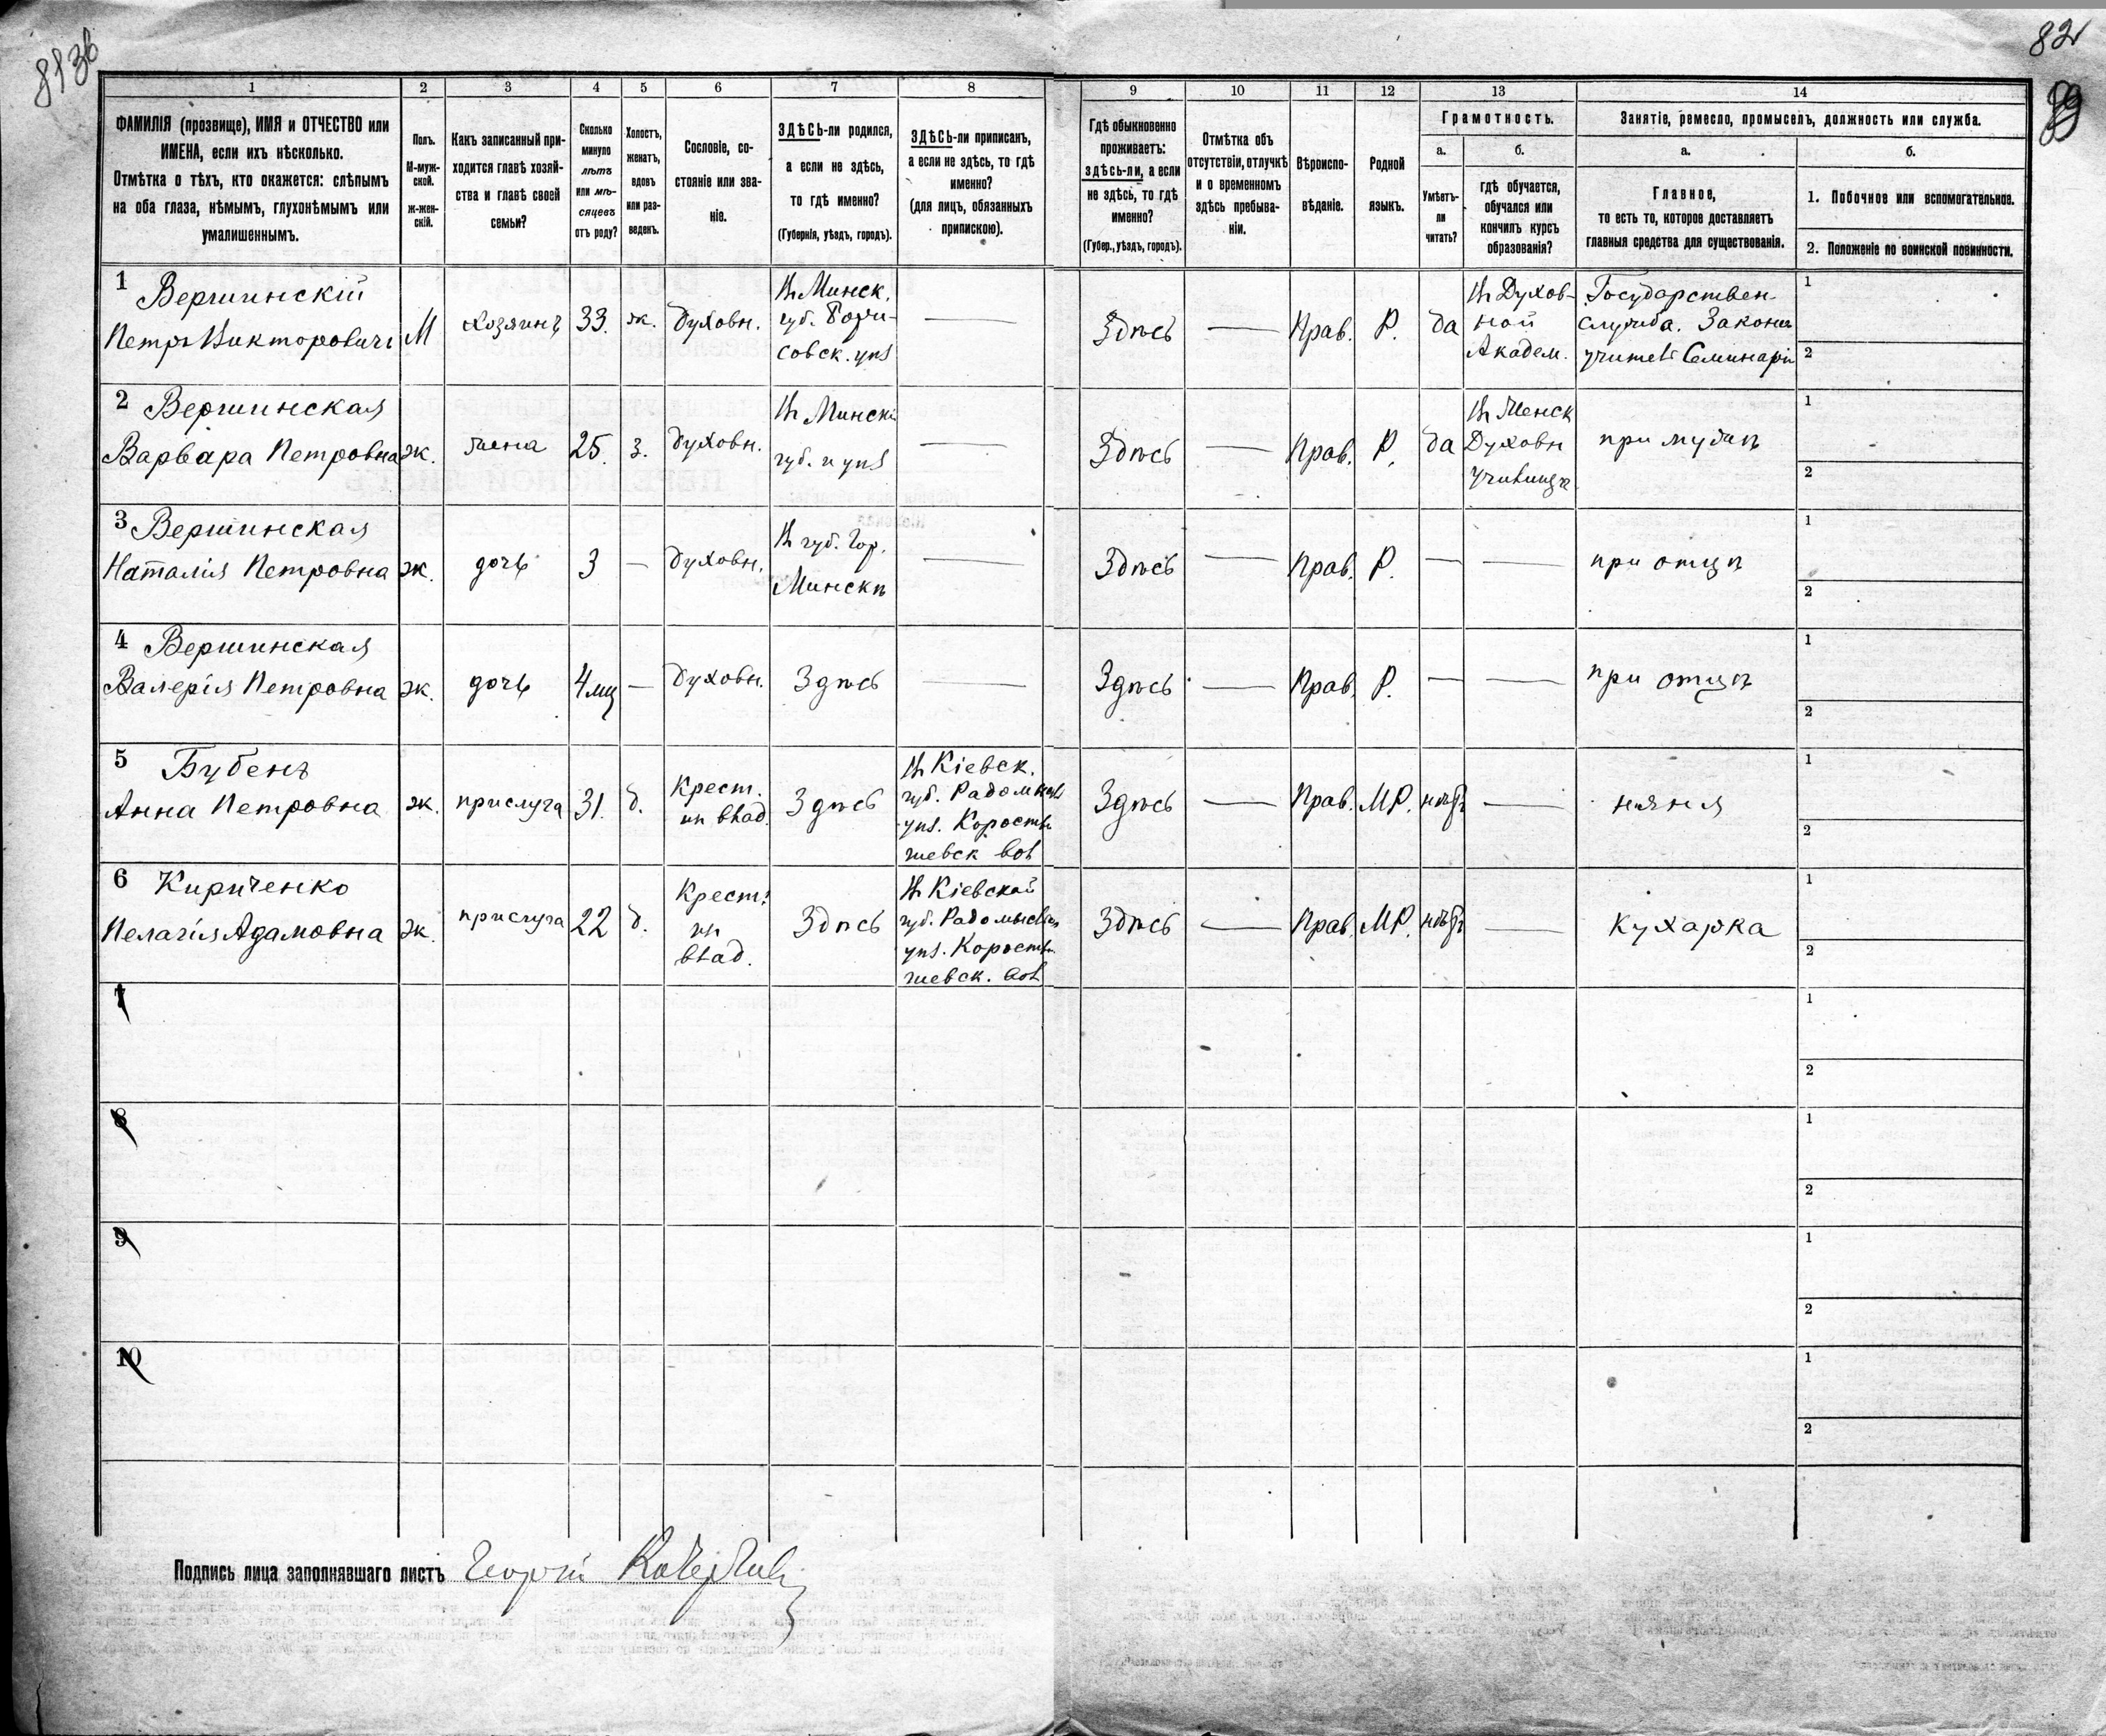 813б
82
89
1
2
3
4
5
6
7
8
9
10
11
12
13
14
ФАМИЛІЯ (прозвище), ИМЯ и ОТЧЕСТВО или
ИМЕНА, если ихъ нѣсколько.
Отмѣтка о тѣхъ, кто окажется: слѣпымъ
на оба глаза, нѣмымъ, глухонѣмымъ или
умалишеннымъ.
Полъ.
М-муж-
ской.
Ж-жен-
скій.
Какъ записанный при-
ходится главѣ хозяй-
ства и главѣ своей
семьи?
Сколько
минуло
лѣтъ
или мѣ-
сяцевъ
отъ роду?
Холостъ,
женатъ,
вдовъ
или раз-
веденъ.
Сословіе, со-
стояніе или зва-
ніе.
ЗДѢСЬ-ли родился,
а если не здѣсь,
то гдѣ именно?
(Губернія, уѣздъ, городъ).
ЗДѢСЬ-ли приписанъ,
а если не здѣсь, то гдѣ
именно?
(для лицъ, обязанныхъ
припискою).
Гдѣ обыкновенно
проживаетъ:
здѣсь-ли, а если
не здѣсь, то гдѣ
именно?
(Губер., уѣздъ, городъ).
Отмѣтка объ
отсутствіи, отлучкѣ
и о временномъ
здѣсь пребыва-
ніи.
Вѣроиспо-
вѣданіе.
Родной
языкъ.
Грамотность.
а.
Умѣетъ-
ли
читать?
б.
гдѣ обучается,
обучался или
кончилъ курсъ
образованія?
Занятіе, ремесло, промыселъ, должность или служба.
а.
Главное,
то есть то, которое доставляетъ
главныя средства для существованія.
б.
1. Побочное или вспомогательное.
2. Положеніе по воинской повинности.
1
Вершинскій
Петръ Викторовичъ
М
хозяинъ
33.
ж.
духовн.
Минск.
губ. Бори-
совск. уѣз
Здѣсь
Прав.
Р.
да
Духов-
ной
Академ.
Государствен.
служба. Законо
учитель Семинаріи
1
2
2
Вершинская
Варвара Петровна
ж.
жена
25.
з.
духовн.
Минск
губ. и уѣз
Здѣсь
Прав.
Р.
да
Менск
Духовн
училище
при мужѣ
1
2
3
Вершинская
Наталія Петровна
ж.
дочь
3
духовн.
губ. гор.
Минскѣ
Здѣсь
Прав.
Р.
при отцѣ
1
2
4
Вершинская
Валерія Петровна
ж.
дочь
4 мц
духовн.
Здѣсь
Здѣсь
Прав.
Р.
при отцѣ
1
2
5
Бубенъ
Анна Петровна
ж.
прислуга
31.
д.
Крест.
из влад.
Здѣсь
Кіевск.
губ. Радомысл
уѣз. Коросты
шевск вол
Здѣсь
Прав.
МР.
нѣтъ
няня
1
2
6
Кириченко
Пелагія Адамовна
ж.
прислуга
22
д.
Крест.
из
влад.
Здѣсь
Кіевской
губ. Радомысл
уѣз. Коросты
шевск. вол
Здѣсь
Прав.
МР.
нѣтъ
кухарка
1
2
7
1
2
8
1
2
9
1
2
10
1
2
Подпись лица заполнявшаго листъ Георгій